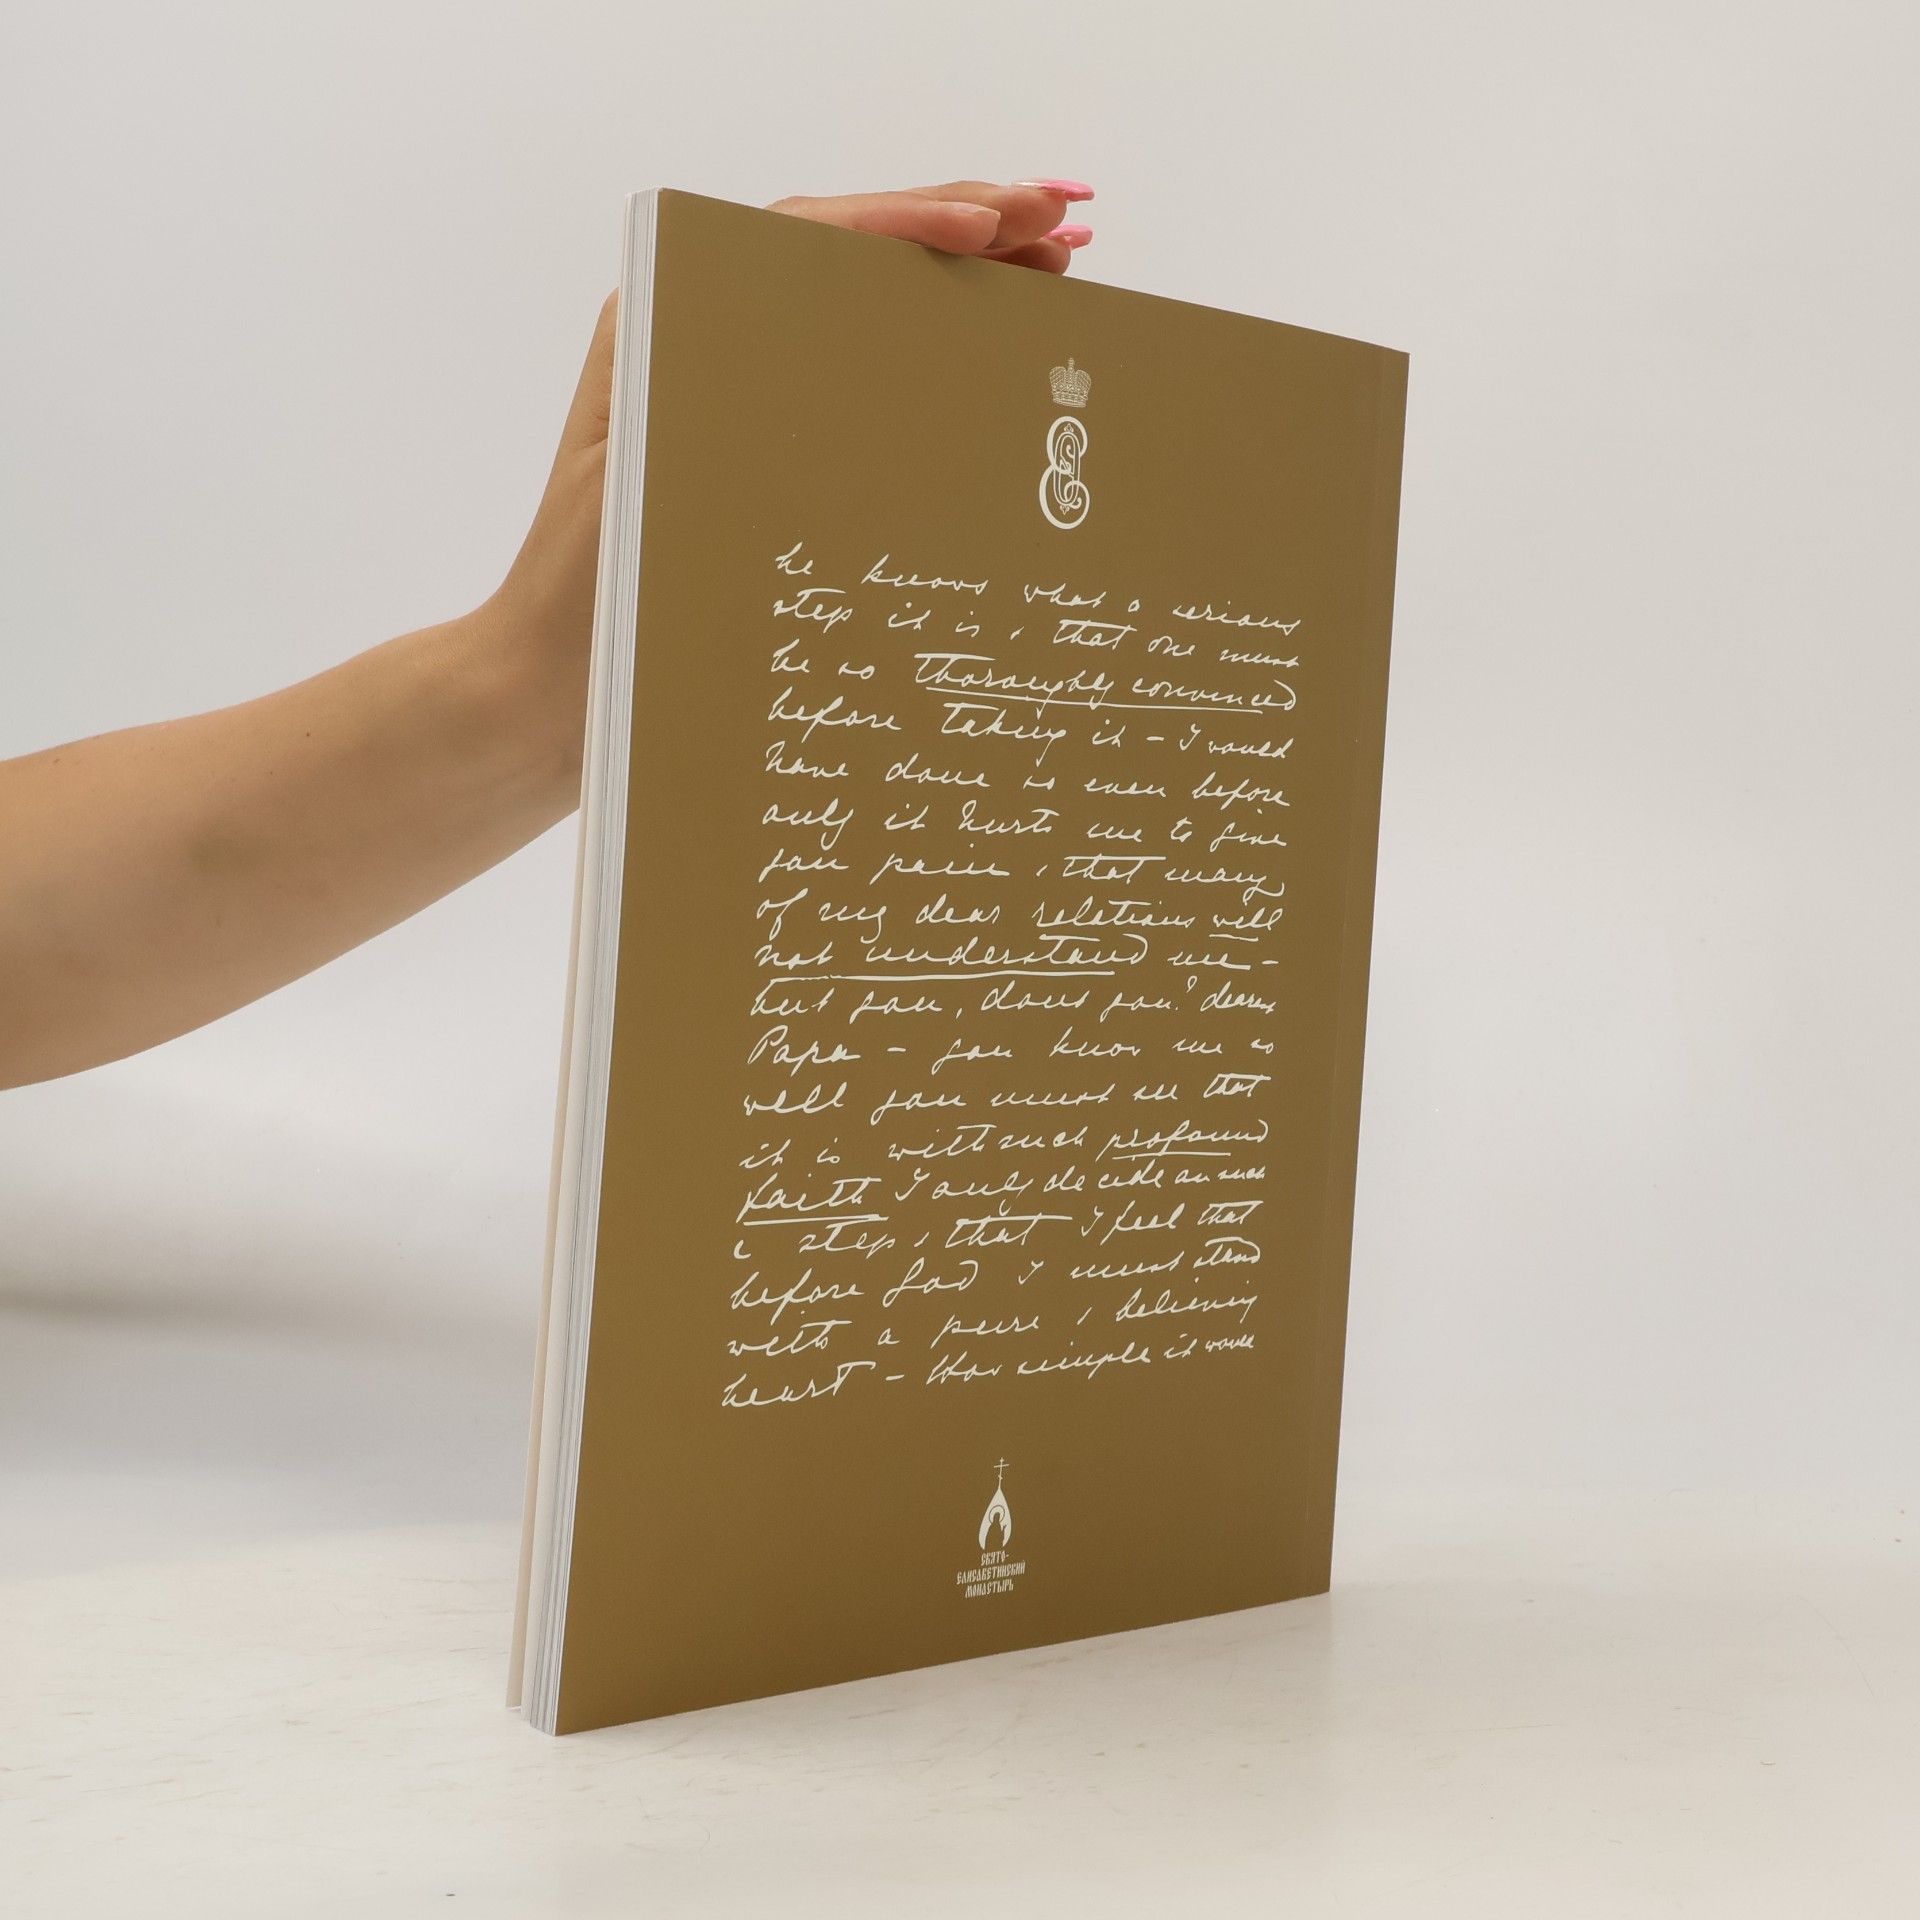 he knows what a serious
step it is & that one must
be so thoroughly convinced
before taking it – I would
have done so even before
only it hurts me to give
you pain, & that many
of my dear relations will
not understand me –
but you, dont you? dearest
Papa – you know me so
well you must see that
it is with such profound
faith I only decide on such
a step, & that I feel that
before God I must stand
with a pure & believing
heart – How simple it would
СВЯТО-
ЕЛИСАВЕТИНСКИЙ
МОНАСТЫРЬ